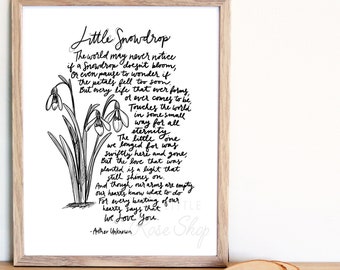 Little Snowdrop
The world may never notice
if a Snowdrop doesn't bloom,
Or even pause to wonder if
the petals fell too soon.
But every life that ever forms,
or ever comes to be,
Touches the world
in some small
way for all
eternity.
The little one
we longed for was
swiftly here and gone.
But the love that was
planted is a light that
still shines on.
And though our arms are empty,
our hearts know what to do
For every beating of our
hearts says that
We love you.
- Author Unknown
Rose Shop